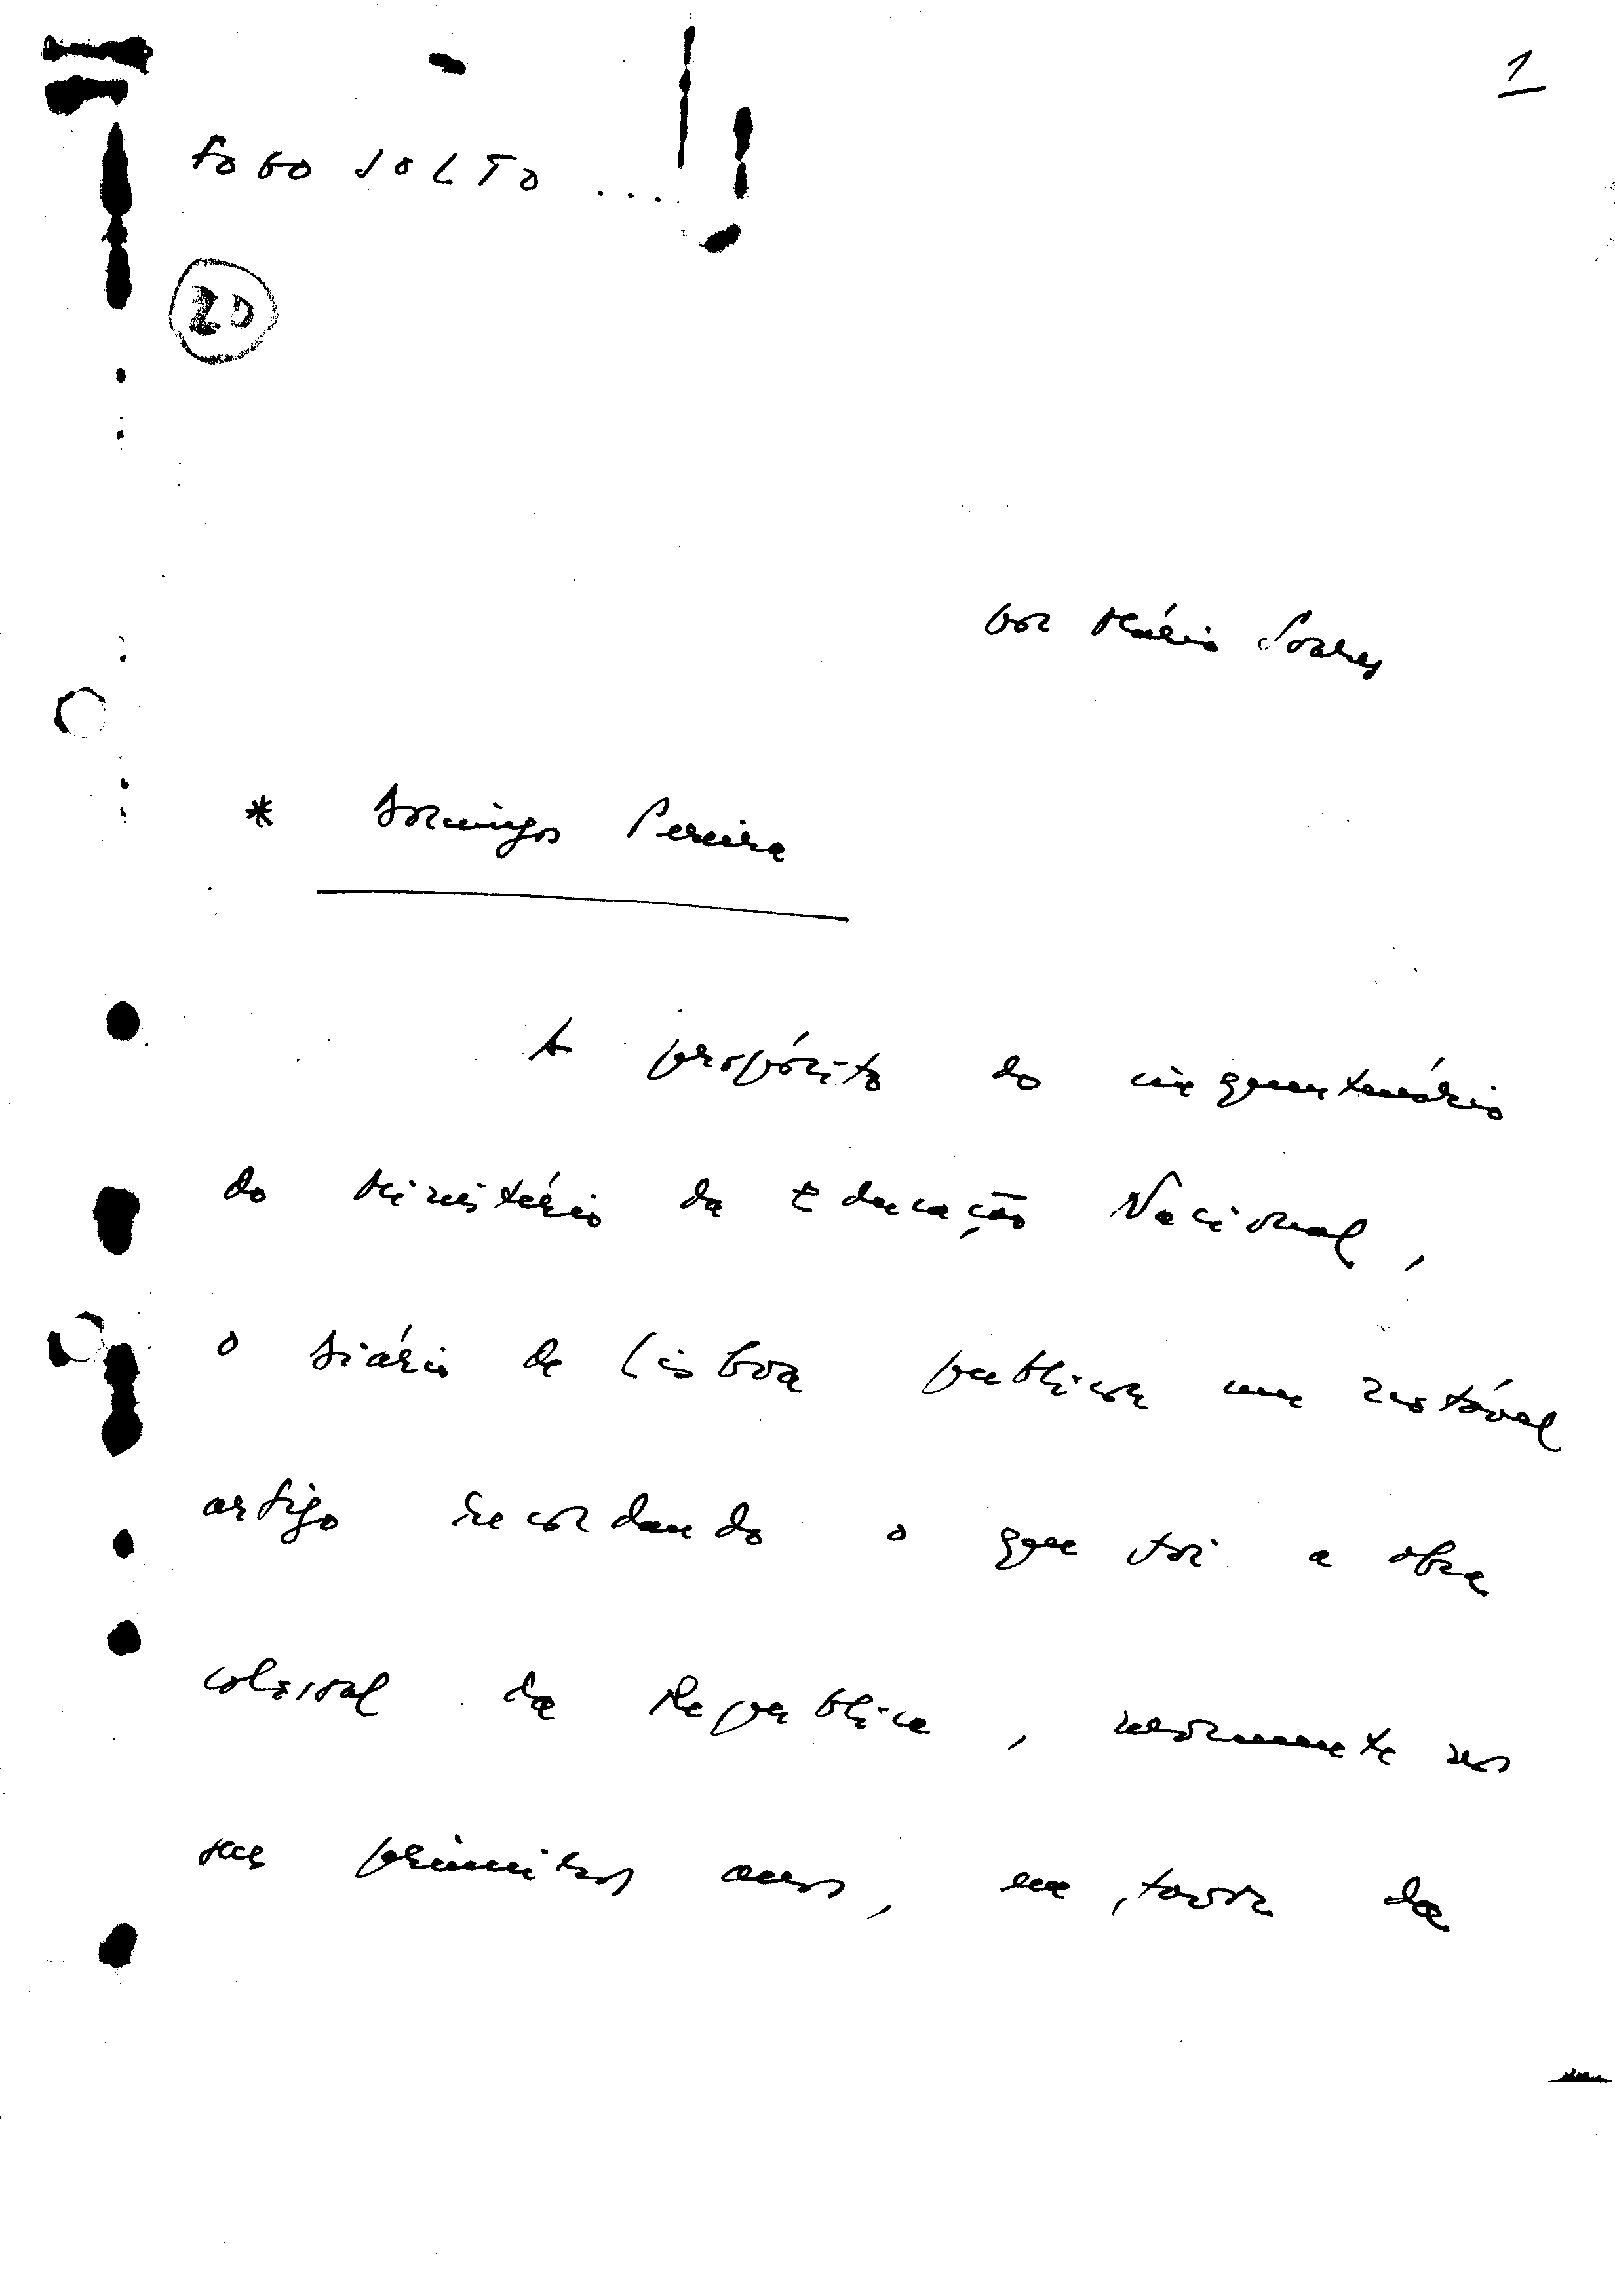 1
FOGO SOLTO ....
20
por Mário Soares
* Domingos Pereira
A propósito do cinquentenário
do Ministério da Educação Nacional,
o Diário de Lisboa publicou um notável
artigo recordando o que foi a obra
colossal da Republica, nomeadamente nos
seus primeiros anos, em favor da